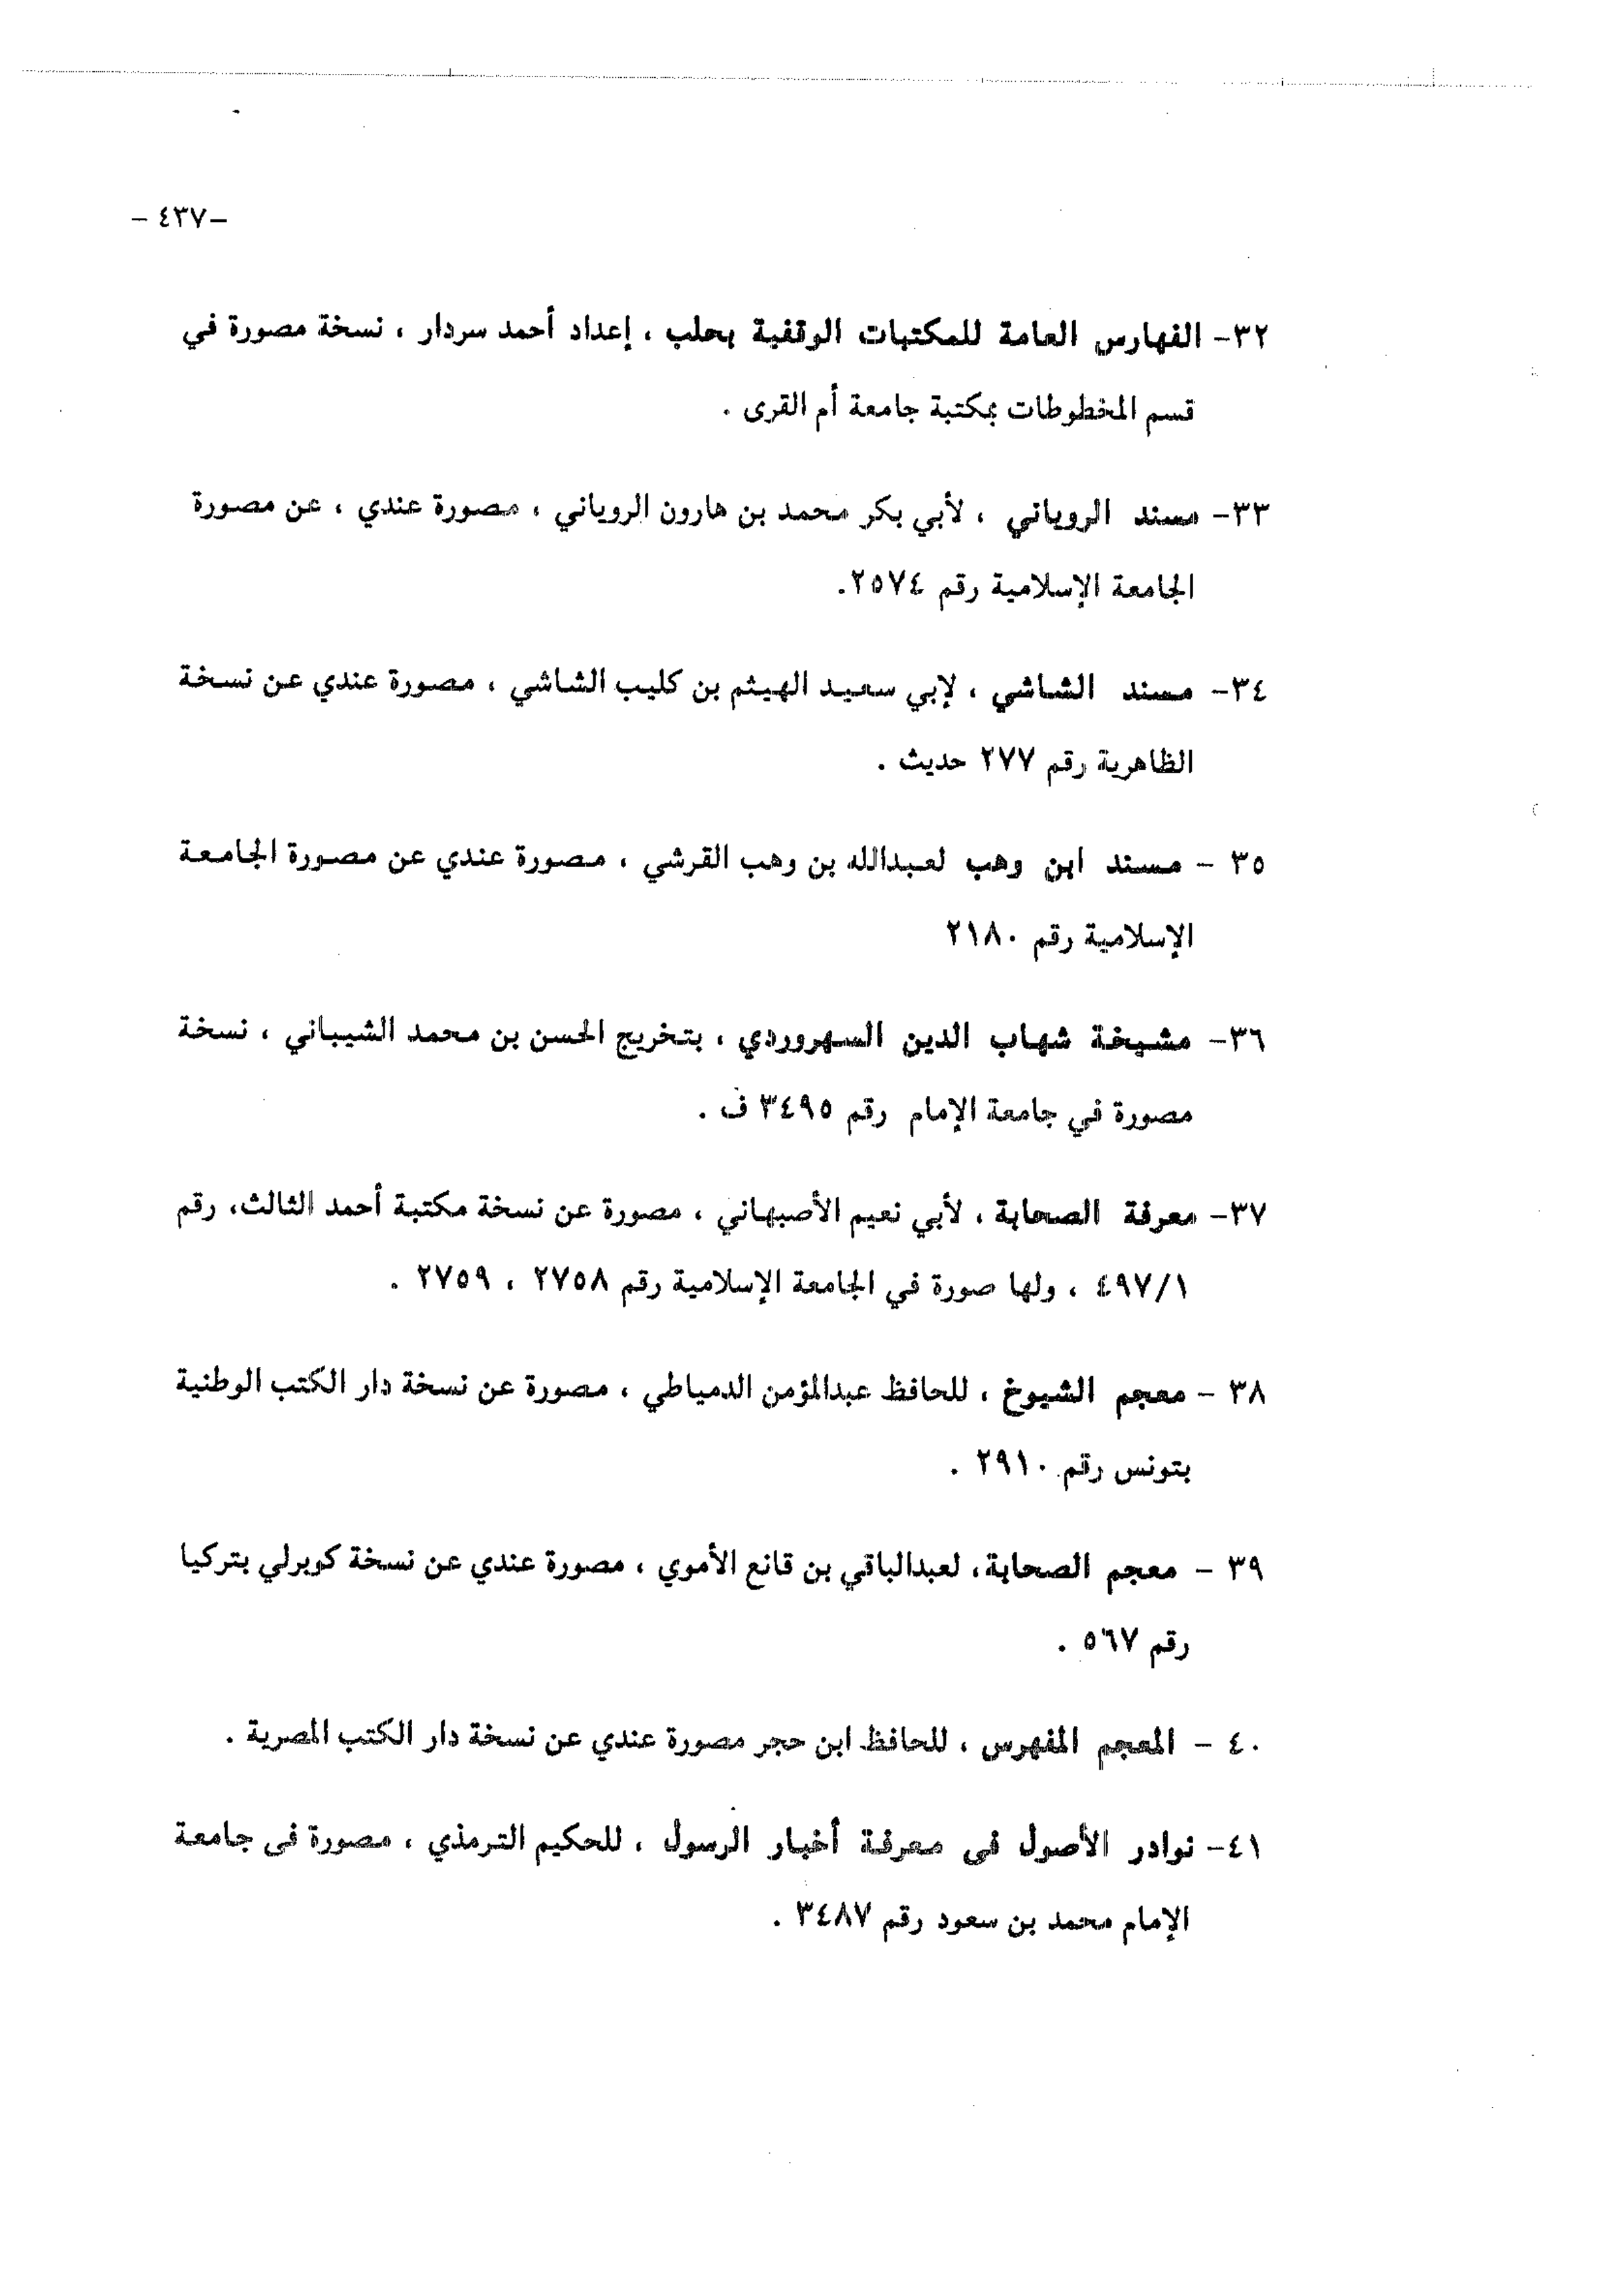 -٤٣٧ -
٣٢- الفهارس العامة للمكتبات الوقفية بحلب ، إعداد أحمد سردار ، نسخة مصورة في
قسم المخطوطات بمكتبة جامعة أم القرى .
٣٣- مسند الروياني ، لأبي بكر محمد بن هارون الروياني ، مصورة عندي ، عن مصورة
الجامعة الإسلامية رقم ٢٥٧٤.
٣٤- مسند الشاشي ، لإبي سعيد الهيثم بن كليب الشاشي ، مصورة عندي عن نسخة
الظاهرية رقم ٢٧٧ حديث .
٣٥ - مسند ابن وهب لعبدالله بن وهب القرشي ، مصورة عندي عن مصورة الجامعة
الإسلامية رقم ٢١٨٠
٣٦- مشيخة شهاب الدين السهروردي ، بتخريج الحسن بن محمد الشيباني ، نسخة
مصورة في جامعة الإمام رقم ٣٤٩٥ ف .
٣٧- معرفة الصحابة ، لأبي نعيم الأصبهاني ، مصورة عن نسخة مكتبة أحمد الثالث، رقم
٤٩٧/١ ، ولها صورة في الجامعة الإسلامية رقم ٢٧٥٨ ، ٢٧٥٩ .
٣٨ - معجم الشيوخ ، للحافظ عبدالمؤمن الدمياطي ، مصورة عن نسخة دار الكتب الوطنية
بتونس رقم ٢٩١٠ .
٣٩ - معجم الصحابة، لعبدالباقي بن قانع الأموي ، مصورة عندي عن نسخة كوبرلي بتركيا
رقم ٥٦٧ .
٤٠ - المعجم المفهرس ، للحافظ ابن حجر مصورة عندي عن نسخة دار الكتب المصرية .
٤١- نوادر الأصول فى معرفة أخبار الرسول ، للحكيم الترمذي ، مصورة فى جامعة
الإمام محمد بن سعود رقم ٣٤٨٧ .